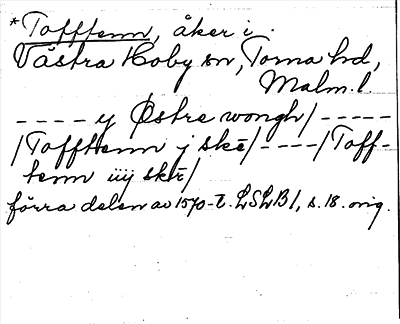 *Tofftenn, åker i
Västra Hoby sn, Torna hd,
Malm. l.
- - - - y Østre wongh/ - - - - -
/Tofftenn j ske/ - - - -/Toff-
tenn iij ske/
förra delen av 1570-t. LSLB1, s. 18. orig.